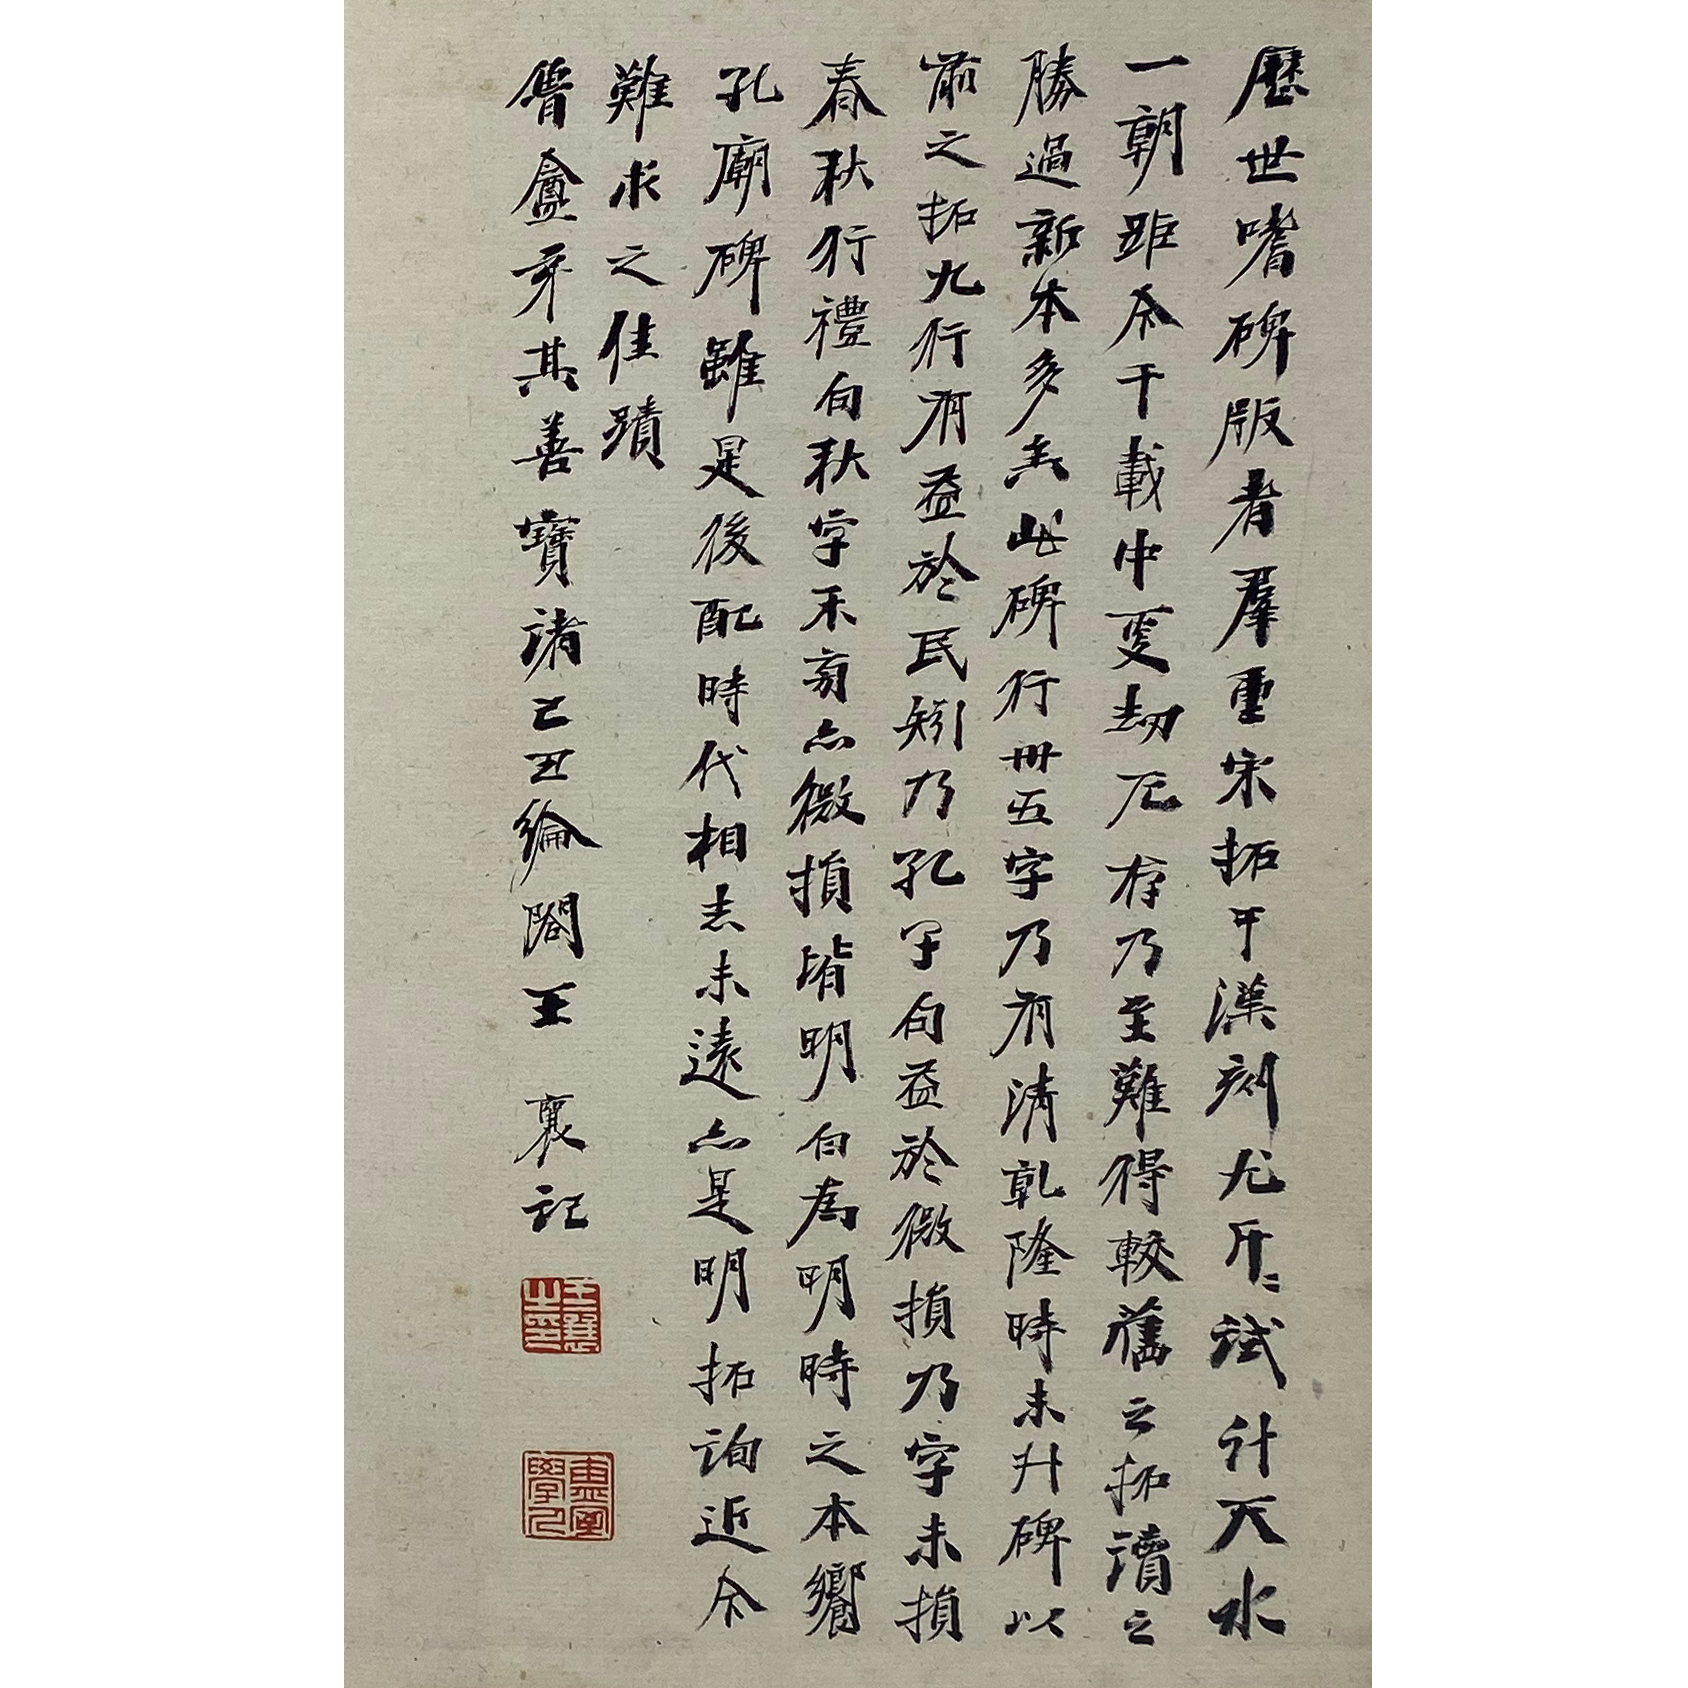 歷世嗜碑版者羣重宋拓于漢刻尤斤〻試計天水
一朝距今千載中更劫厄存乃至難得較舊之拓讀之
勝過新本多矣此碑行卌五字乃有清乹隆時未升碑以
前之拓九行有益於民矧乃孔子句益於微損乃字未損
春秋行禮句秋字禾旁亦微損皆明白為明時之本饗
孔廟碑雖是後配時代相去未遠亦是明拓詢近今
難求之佳蹟
胥盦弟其善寶諸己丑綸閣王襄記
王襄之印